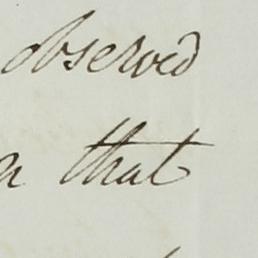 observed
that